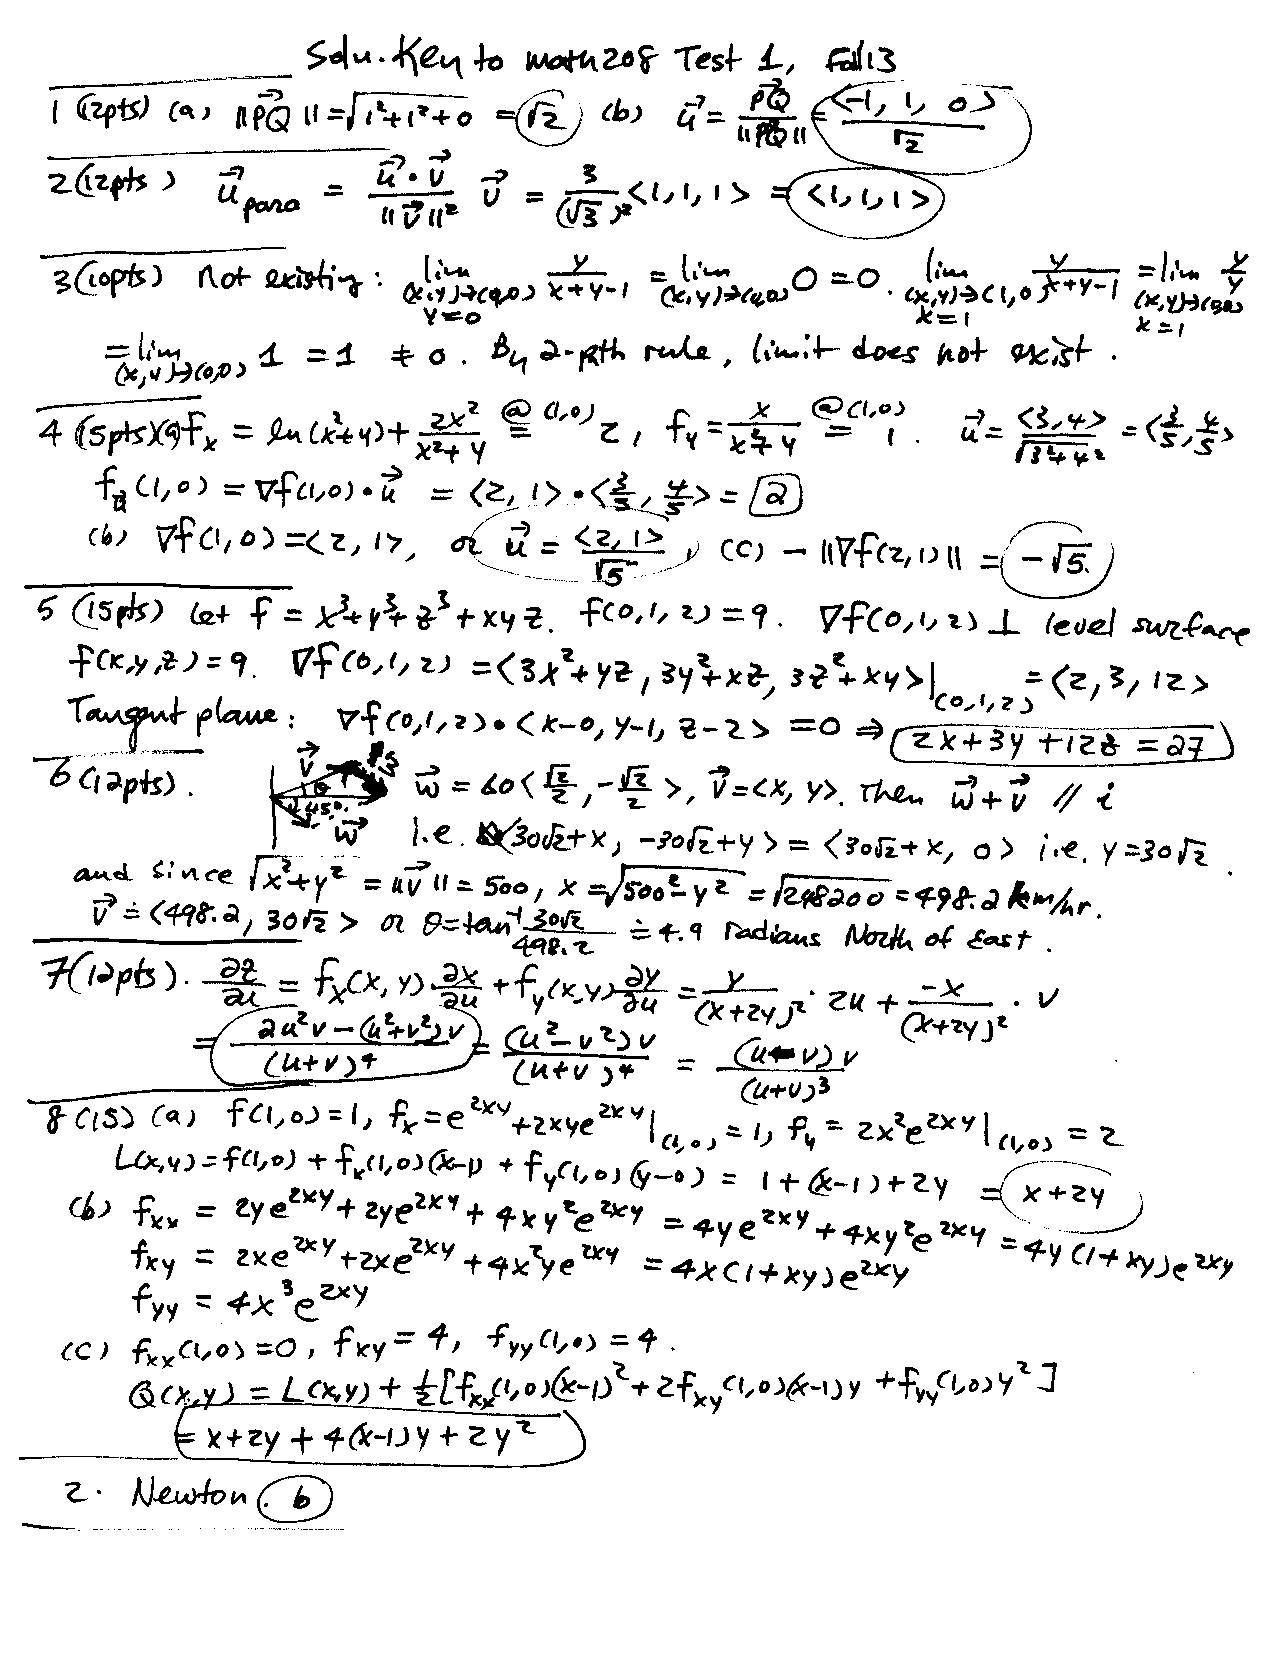 Solu. Key to math208 Test 1, Fall13
1 (12pts) (a) ||PQ⃗|| = √(1²+1²+0) = √2 (b) u⃗ = PQ⃗/||PQ⃗|| = <-1, 1, 0>/√2
2 (12pts) u⃗para = (u⃗·v⃗)/||v⃗||² v⃗ = 3/(√3)² <1, 1, 1> = <1, 1, 1>
3 (10pts) Not existing: lim (x,y)→(0,0) y=0 y/(x+y-1) = lim (x,y)→(0,0) 0 = 0. lim (x,y)→(1,0) x=1 y/(x+y-1) = lim (x,y)→(0,0) x=1 y/y
= lim (x,y)→(0,0) 1 = 1 ≠ 0. By 2-path rule, limit does not exist.
4 (15pts)(a) fx = ln(x²+y) + 2x²/(x²+y) @(1,0) = 2, fy = x/(x²+y) @(1,0) = 1. u⃗ = <3,4>/√(3²+4²) = <3/5, 4/5>
fu⃗(1,0) = ∇f(1,0)·u⃗ = <2, 1>·<3/5, 4/5> = 2
(b) ∇f(1,0) = <2, 1>, or u⃗ = <2, 1>/√5, (c) -||∇f(2,1)|| = -√5.
5 (15pts) Let f = x³+y³+z³+xyz. f(0,1,2) = 9. ∇f(0,1,2) ⊥ level surface
f(x,y,z)=9. ∇f(0,1,2) = <3x²+yz, 3y²+xz, 3z²+xy>|(0,1,2) = <2, 3, 12>
Tangent plane: ∇f(0,1,2)·<x-0, y-1, z-2> = 0 ⇒ 2x+3y+12z = 27
6 (12pts). v⃗ θ 45° w⃗ w⃗ = 60<√2/2, -√2/2>, v⃗ = <x, y>. Then w⃗+v⃗ // i
i.e. <30√2+x, -30√2+y> = <30√2+x, 0> i.e. y=30√2.
and since √(x²+y²) = ||v⃗|| = 500, x = √(500²-y²) = √248200 = 498.2 km/hr.
v⃗ ≐ <498.2, 30√2> or θ = tan⁻¹ 30√2/498.2 ≐ 4.9 radians North of East.
7 (12pts). ∂z/∂u = fx(x,y) ∂x/∂u + fy(x,y) ∂y/∂u = y/(x+2y)² · 2u + -x/(x+2y)² · v
= (2u²v-(u²+v²)v)/(u+v)⁴ = (u²-v²)v/(u+v)⁴ = (u-v)v/(u+v)³
8 (15) (a) f(1,0)=1, fx = e^{2xy}+2xye^{2xy}|(1,0) = 1, fy = 2x²e^{2xy}|(1,0) = 2
L(x,y) = f(1,0) + fx(1,0)(x-1) + fy(1,0)(y-0) = 1+(x-1)+2y = x+2y
(b) fxx = 2ye^{2xy} + 2ye^{2xy} + 4xy²e^{2xy} = 4ye^{2xy} + 4xy²e^{2xy} = 4y(1+xy)e^{2xy}
fxy = 2xe^{2xy} + 2xe^{2xy} + 4x²ye^{2xy} = 4x(1+xy)e^{2xy}
fyy = 4x³e^{2xy}
(c) fxx(1,0)=0, fxy = 4, fyy(1,0) = 4.
Q(x,y) = L(x,y) + ½[fxx(1,0)(x-1)² + 2fxy(1,0)(x-1)y + fyy(1,0)y²]
= x+2y + 4(x-1)y + 2y²
2. Newton. b